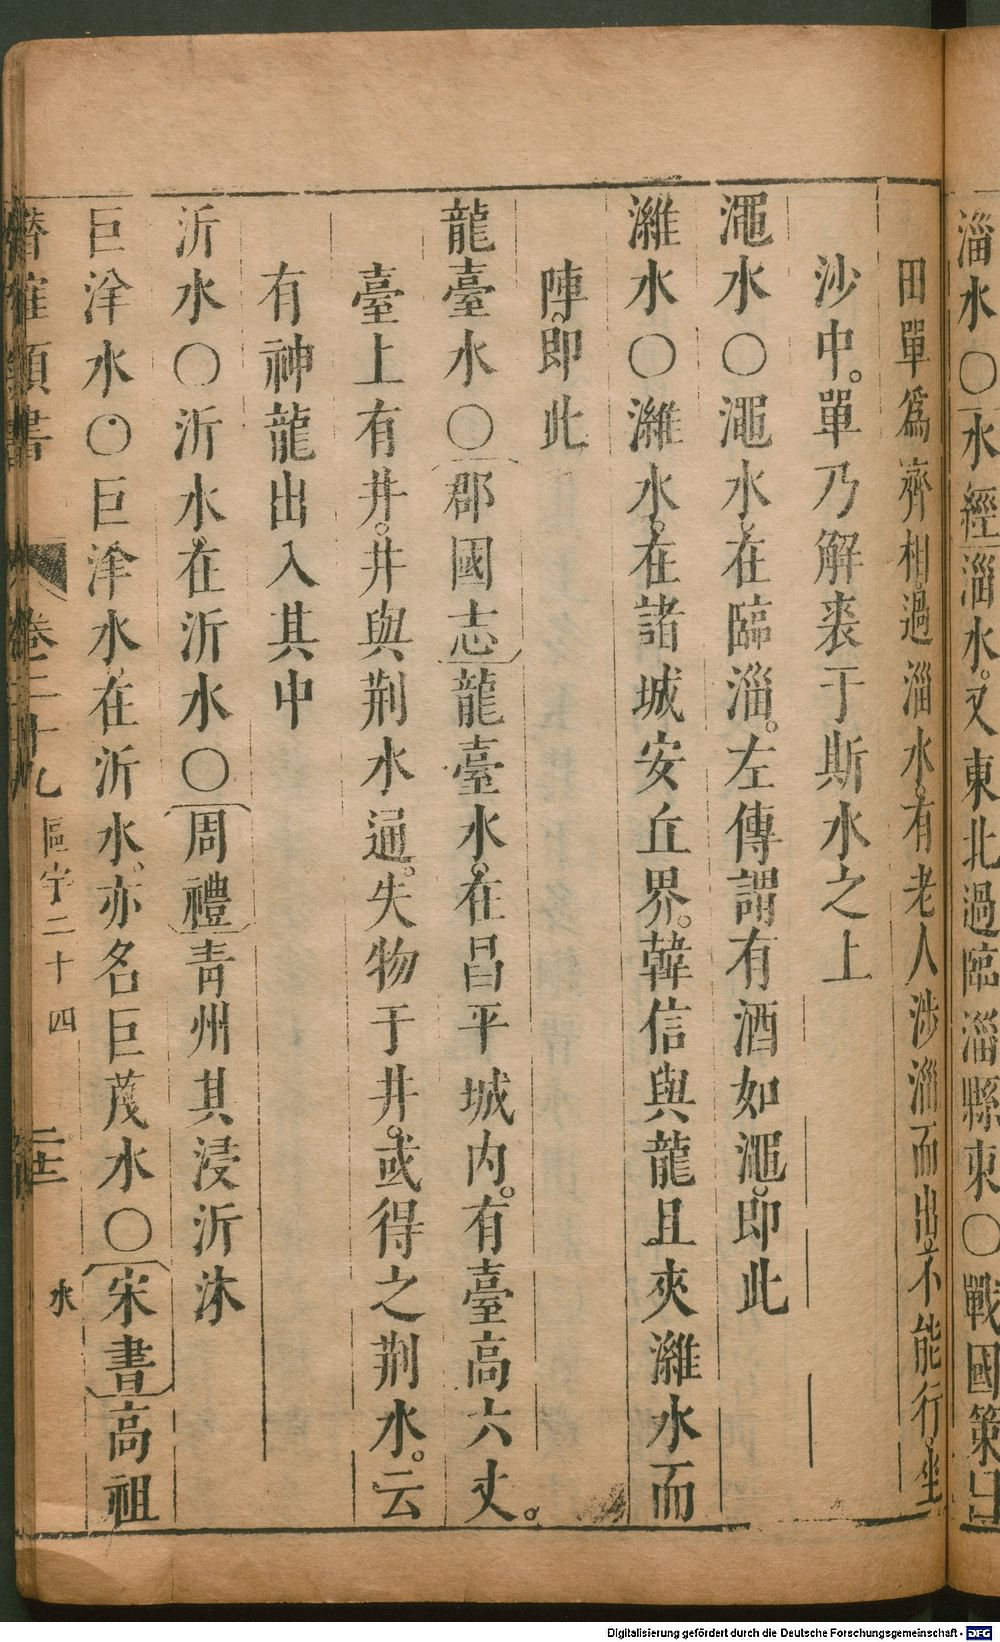 淄水○水經淄水。又東北過臨淄縣東○戰國策
田單爲齊相過淄水。有老人涉淄而出。不能行。坐
沙中。單乃解裘于斯水之上
澠水○澠水。在臨淄。左傳謂有酒如澠。即此
濰水○濰水。在諸城安丘界。韓信與龍且夾濰水而
陣。即此
龍臺水○郡國志龍臺水。在昌平城內。有臺高六丈。
臺上有井。井與荆水通。失物于井。或得之荆水。云
有神龍出入其中
沂水○沂水。在沂水○周禮青州其浸沂沭
巨洋水○巨洋水。在沂水。亦名巨蔑水○宋書高祖
潛確類書 卷二十九 區宇二十四 二十二 水
Digitalisierung gefördert durch die Deutsche Forschungsgemeinschaft - DFG